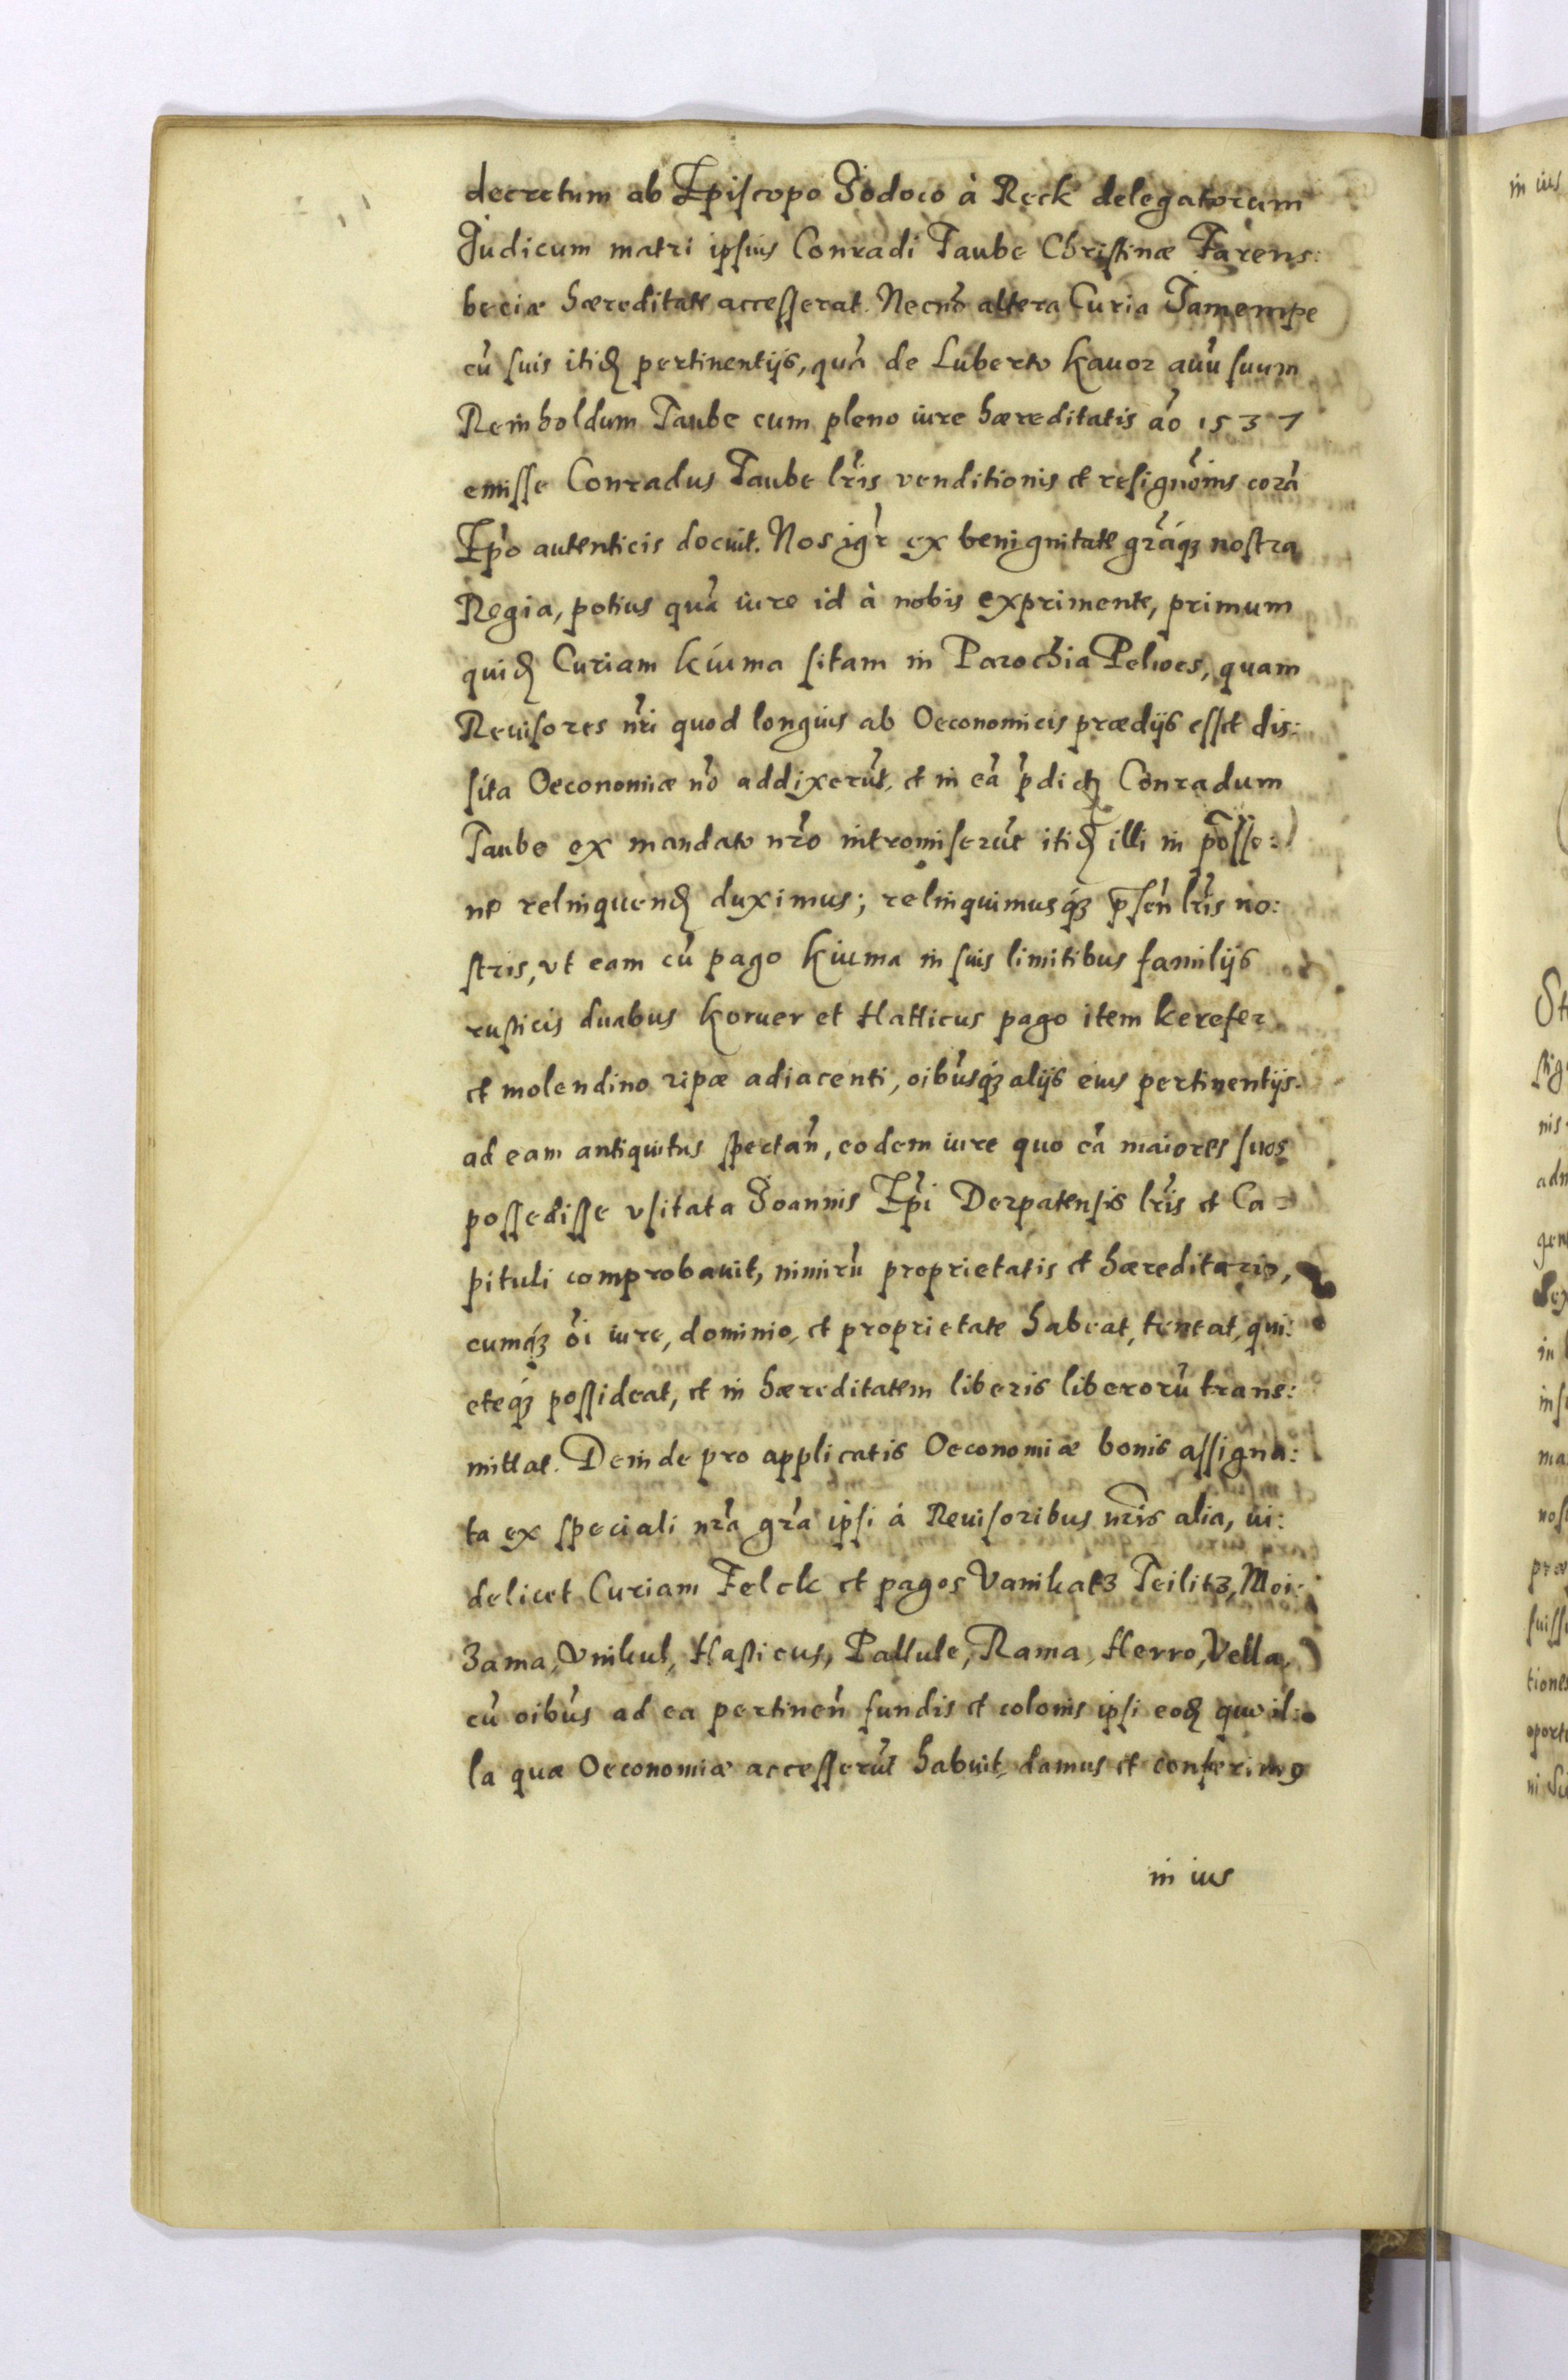 decretum ab Episcopo Jodoco à Reck delegatorum
Judicum matri ipsius Conradi Taube Christinæ Farens:
beciæ hæreditate accesserat. Necnõ altera Curia Tamempe
cũ suis itid pertinentijs, quã de Luberto Kauor auũ suum
Reinholdum Taube cum pleno iure hæreditatis aõ 1537
emisse Conradus Taube lr̃is venditionis et resignõnis corã
Ep̃o autenticis docuit. Nos igr̃ ex benignitate gr̃aq; nostra
Regia, potius quã iure id à nobis exprimente, primum
quid Curiam Kiuma sitam in Parochia Pelwes, quam
Reuisores nr̃i quod longius ab Oeconomicis prædijs esset dis:
sita Oeconomiæ nõ addixerũt, et in eã p̃dict Conradum
Taube ex mandato nr̃o intromiserũt itid illi in posse:
ne relinquend duximus; relinquimusq; p̃sen̄ lr̃is no:
stris, vt eam cũ pago Kiuma in suis limitibus familijs
rusticis duabus Koruer et Hatticus pago item Kerefer
et molendino ripæ adiacenti, oĩbusq; alijs eius pertinentijs
ad eam antiquitus spectañ, eodem iure quo eã maiores suos
possedisse vsitata Joannis Ep̃i Derpatensis lr̃is et Ca=
pituli comprobauit, nimirũ proprietatis et hæreditario,
cumq; oĩ iure, dominio, et proprietate habeat, teneat, qui:
eteq; possideat, et in hæreditatem liberis liberorũ trans:
mittat. Deinde pro applicatis Oeconomiæ bonis assigna:
ta ex speciali nr̃a gr̃a ipsi á Reuisoribus nr̃is alia, ui:
delicet Curiam Felck et pagos Vanikatz Teilitz, Moi:
zama, Vnikul, Hasticus, Pallule, Rama, Herro, Vella,
cũ oĩbus ad ea pertineñ fundis et colonis ipsi eod quo il:
la quæ Oeconomiæ accesserũt habuit, damus et conferimꝰ
in ius
in ius